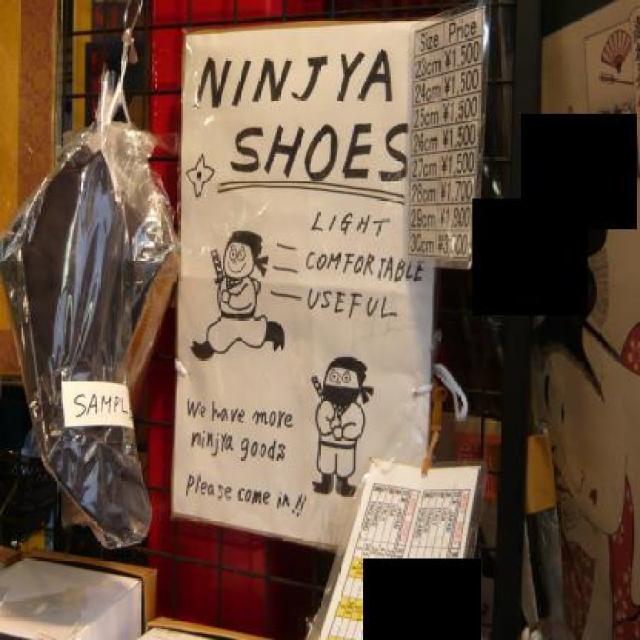 NINJYA
SHOES
LIGHT
COMFORTABLE
USEFUL
We have more
ninjya goods
Please come in.!!
SAMPL
Size Price
23cm ¥1,500
24cm ¥1,500
25cm ¥1,500
26cm ¥1,500
27cm ¥1,500
28cm ¥1,700
29cm ¥1,900
30cm